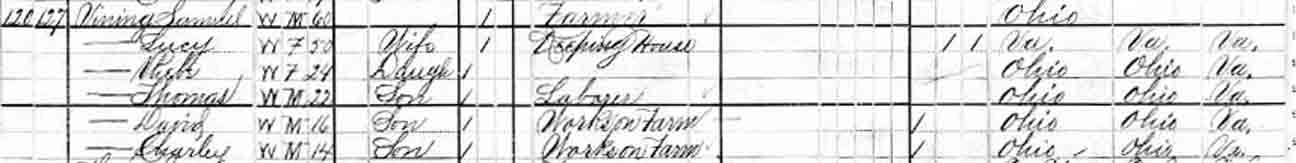 120 127 Vining Samuel W M 60 1 Farmer Ohio
— Lucy W F 50 Wife 1 Keeping House 1 1 Va. Va. Va.
— W F 24 Daugh 1 Ohio Ohio Va.
— Thomas W M 22 Son 1 Laborer Ohio Ohio Va.
— David W M 16 Son 1 Works on Farm 1 Ohio Ohio Va.
— Charley W M 14 Son 1 Works on Farm 1 Ohio Ohio Va.